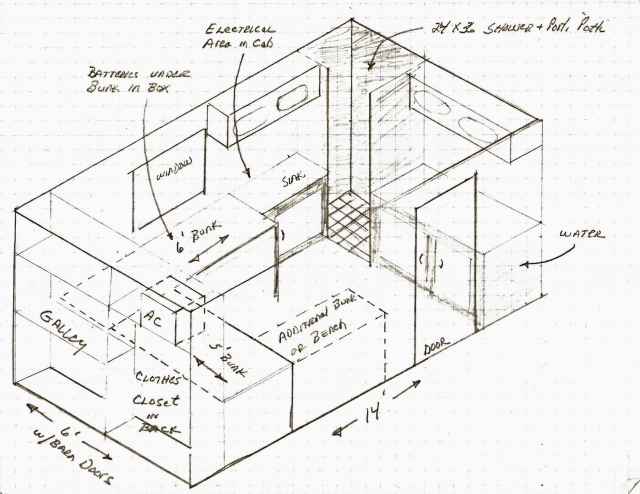 ELECTRICAL
AREA IN CAB
24 X 36 SHOWER + PORTI POTTI
BATTERIES UNDER
BUNK IN BOX
WINDOW
SINK
6' BUNK
WATER
AC
GALLEY
ADDITIONAL BUNK
OR BENCH
5' BUNK
DOOR
CLOTHES
CLOSET
IN
BACK
14'
6'
W/BARN DOORS